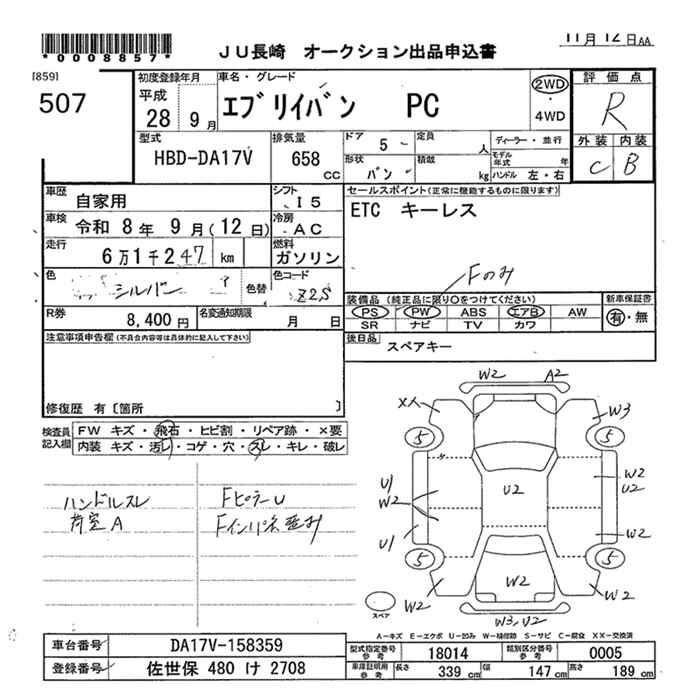 *0008857*
JU長崎 オークション出品申込書
11月12日AA
[859]
507
初度登録年月
平成
28 9月
車名・グレード
エブリイバン PC
2WD
・
4WD
評価点
R
外装 内装
C B
型式
HBD-DA17V
排気量
658
CC
ドア 5
形状 バン
定員 人
積載 kg
ディーラー・並行
モデル年式 年
ハンドル 左・右
車歴
自家用
シフト
I5
車検
令和 8年 9月(12日)
冷房
AC
走行
6万1千247 km
燃料
ガソリン
色
シルバー
色替
色コード
Z2S
R券
8,400円
名変通知期限
月 日
セールスポイント(正常に機能するものに限ります)
ETC キーレス
Fのみ
装備品 (純正品に限り○をつけてください)
PS PW ABS エアB AW
SR ナビ TV カワ
新車保証書
有・無
後日品
スペアキー
注意事項申告欄(不具合内容等は具体的に記入して下さい)
修復歴 有〔箇所 〕
検査員記入欄
FW キズ・飛石・ヒビ割・リペア跡・×要
内装 キズ・汚レ・コゲ・穴・スレ・キレ・破レ
ハンドルスレ
荷室A
FピラーU
Fインパネ歪み
W2 A2
W3
5 5
U1
W2
U1
U2
W2
U2
W2
5 5
W2
W2
W2
W3,U2
スペア
A-キズ E-エクボ U-凹み W-補修跡 S-サビ C-腐食 XX-交換済
車台番号
DA17V-158359
登録番号
佐世保 480 け 2708
型式指定番号
参考
18014
類別区分番号
参考
0005
車庫証明用
参考
長さ 339 cm 幅 147 cm 高さ 189 cm